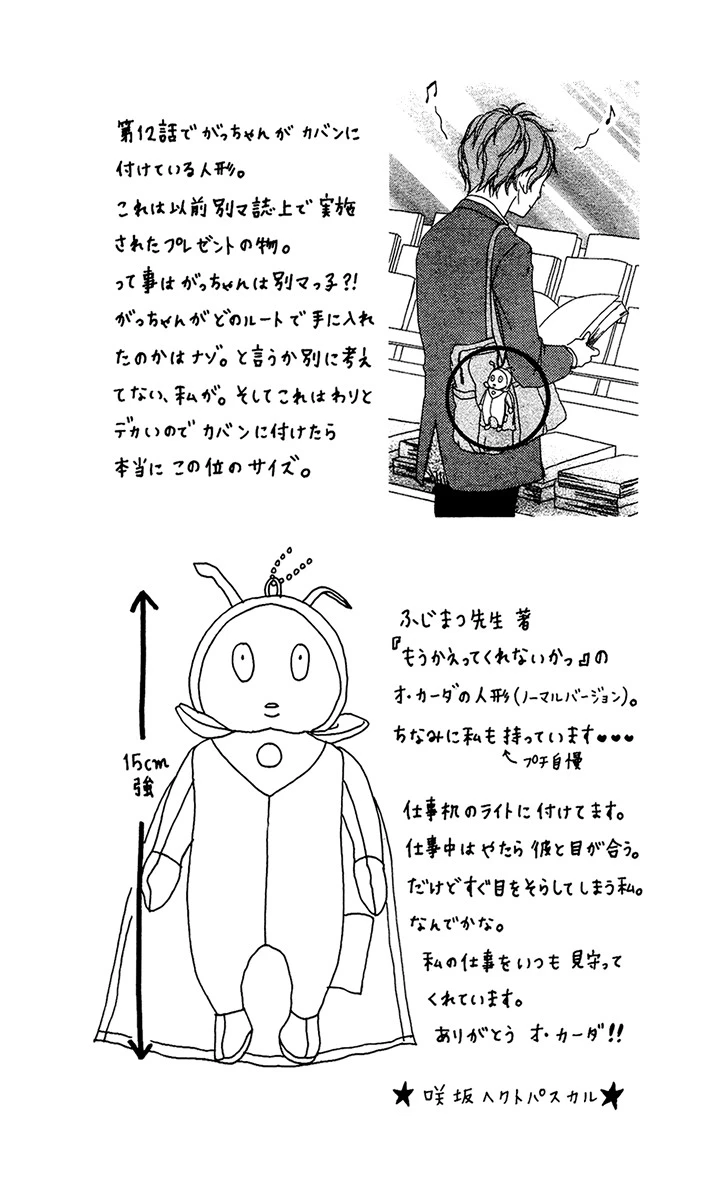 第12話で がっちゃんが カバンに
付けている人形。
これは以前 別マ誌上で 実施
されたプレゼントの物。
って事は がっちゃんは 別マっ子?!
がっちゃんが どのルートで 手に入れ
たのかは ナゾ。と言うか 別に考え
てない、私が。そしてこれは わりと
デカいので カバンに付けたら
本当に この位の サイズ。
15cm
強
ふじまつ先生 著
『もうかえってくれないかっ』の
オ・カーダの人形(ノーマルバージョン)。
ちなみに私も 持っています♥♥♥
プチ自慢
仕事机のライトに 付けてます。
仕事中は やたら 彼と目が合う。
だけどすぐ目をそらしてしまう私。
なんでかな。
私の仕事を いつも 見守って
くれています。
ありがとう オ・カーダ!!
★ 咲坂 ヘクトパスカル ★